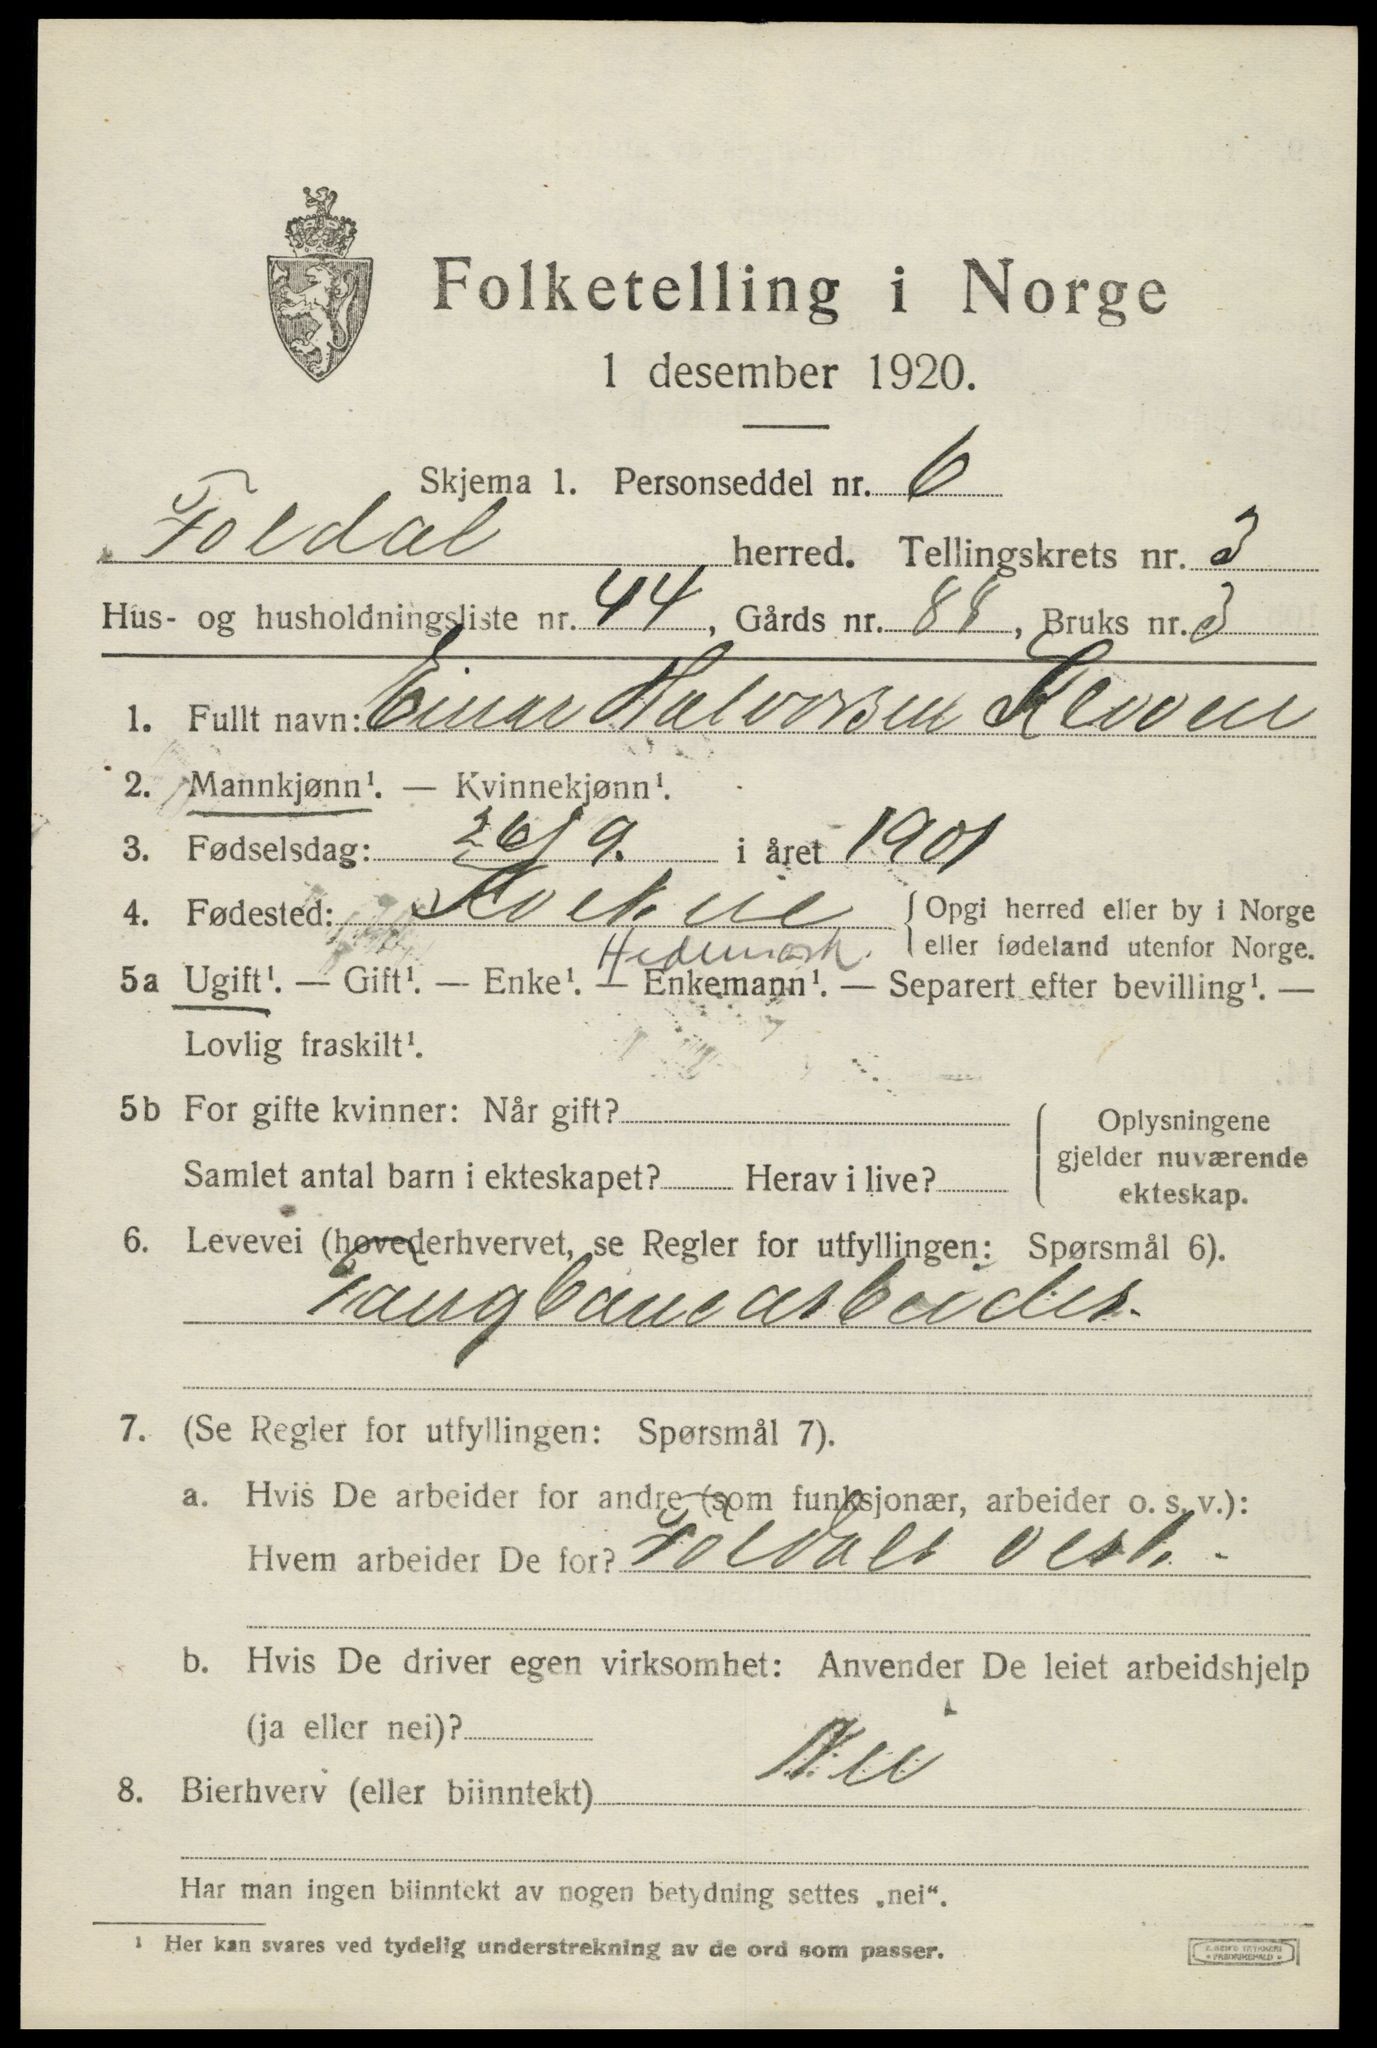 Folketelling i Norge
1 desember 1920.
Skjema 1. Personseddel nr. 6
Foldal herred. Tellingskrets nr. 3
Hus- og husholdningsliste nr. 44, Gårds nr. 88, Bruks nr. 3
1. Fullt navn: Einar Halvorsen Kloven
2. Mannkjønn¹. — Kvinnekjønn¹.
3. Fødselsdag: 26/9. i året 1901
4. Fødested: { Opgi herred eller by i Norge
eller fødeland utenfor Norge.
Hedemark.
5a Ugift¹. — Gift¹. — Enke¹. — Enkemann¹. — Separert efter bevilling¹. —
Lovlig fraskilt¹.
5b For gifte kvinner: Når gift? { Oplysningene
gjelder nuværende
Samlet antal barn i ekteskapet? Herav i live?
ekteskap.
6. Levevei (hovederhvervet, se Regler for utfyllingen: Spørsmål 6).
Taugbanearbeider.
7. (Se Regler for utfyllingen: Spørsmål 7).
a. Hvis De arbeider for andre (som funksjonær, arbeider o. s. v.):
Hvem arbeider De for? Foldals verk.
b. Hvis De driver egen virksomhet: Anvender De leiet arbeidshjelp
(ja eller nei)?
8. Bierhverv (eller biinntekt) Nei
Har man ingen biinntekt av nogen betydning settes „nei“.
¹ Her kan svares ved tydelig understrekning av de ord som passer.